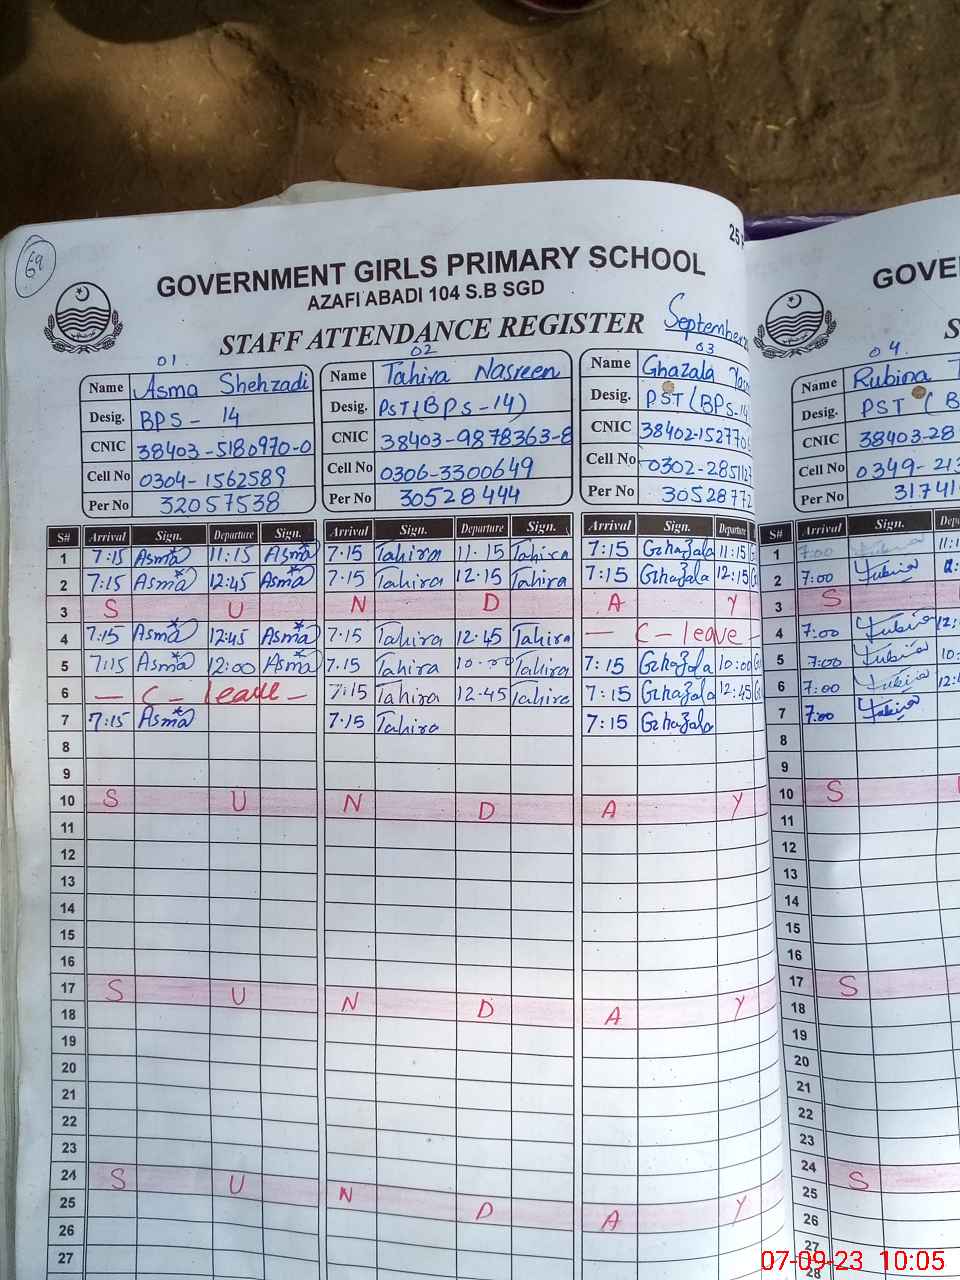 69
25
GOVERNMENT GIRLS PRIMARY SCHOOL
AZAFI ABADI 104 S.B SGD
STAFF ATTENDANCE REGISTER September
01
Name Asma Shehzadi
Desig. BPS - 14
CNIC 38403-5180970-0
Cell No 0304-1562589
Per No 32057538
02
Name Tahira Nasreen
Desig. PST (BPS-14)
CNIC 38403-9878363-8
Cell No 0306-3300649
Per No 30528444
03
Name Ghazala
Desig. PST (BPS-14
CNIC 38402-15277
Cell No 0302-285112
Per No 3052877
S# Arrival Sign. Departure Sign. Arrival Sign. Departure Sign. Arrival Sign. Departure
1 7:15 Asma 11:15 Asma 7:15 Tahira 11.15 Tahira 7:15 Ghazala 11:15
2 7:15 Asma 12:45 Asma 7.15 Tahira 12.15 Tahira 7:15 Ghazala 12:15
3 S U N D A Y
4 7:15 Asma 12:45 Asma 7.15 Tahira 12.45 Tahira — C - leave -
5 7:15 Asma 12:00 Asma 7.15 Tahira 10.00 Tahira 7:15 Ghazala 10:00
6 — C - leave - 7:15 Tahira 12-45 Tahira 7:15 Ghazala 12:45
7 7:15 Asma 7:15 Tahira 7:15 Ghazala
8
9
10 S U N D A Y
11
12
13
14
15
16
17 S U N D A Y
18
19
20
21
22
23
24 S U N D A Y
25
26
27
GOVE
S
04.
Name Rubina
Desig. PST (B
CNIC 38403-28
Cell No 0349-213
Per No 3174
S# Arrival Sign. Dep
1 7:00 11:1
2 7:00 Rubina
3 S
4 7:00 Rubina 12:
5 7:00 Rubina 10:
6 7:00 Rubina 12:
7 7:00 Rubina
8
9
10 S
11
12
13
14
15
16
17 S
18
19
20
21
22
23
24 S
25
26
27
28
07-09-23 10:05